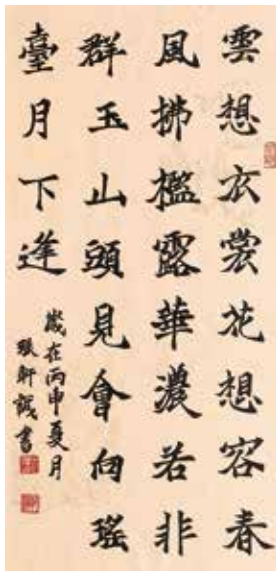 雲想衣裳花想容春
風拂檻露華濃若非
群玉山頭見會向瑤
臺月下逢
歲在丙申夏月
張軒誠書